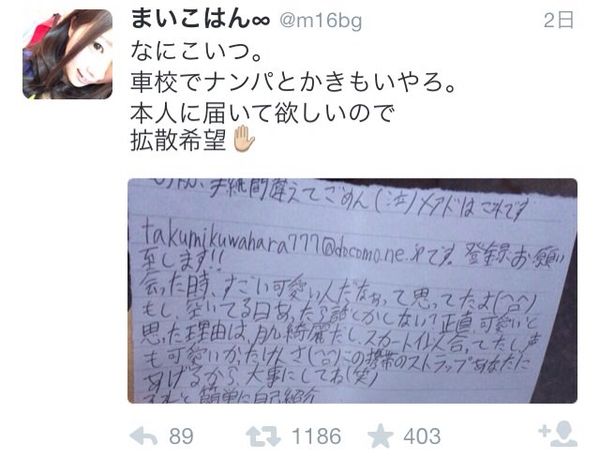 まいこはん∞ @m16bg 2日
なにこいつ。
車校でナンパとかきもいやろ。
本人に届いて欲しいので
拡散希望✋
手紙間違えてごめん(泣)メアドはこれです
takumikuwahara777@docomo.ne.jpです。登録お願い
至します!!
会った時、すごい可愛い人だなぁって思ってたよ(^^)
もし、空いてる日あったら話しかしない?正直可愛いと
思った理由は、肌綺麗だし、スカート似合ってたし声
も可愛いかったけんさ(^^)この携帯のストラップあなたに
あげるから、大事にしてね(笑)
それと簡単に自己紹介
89 1186 403